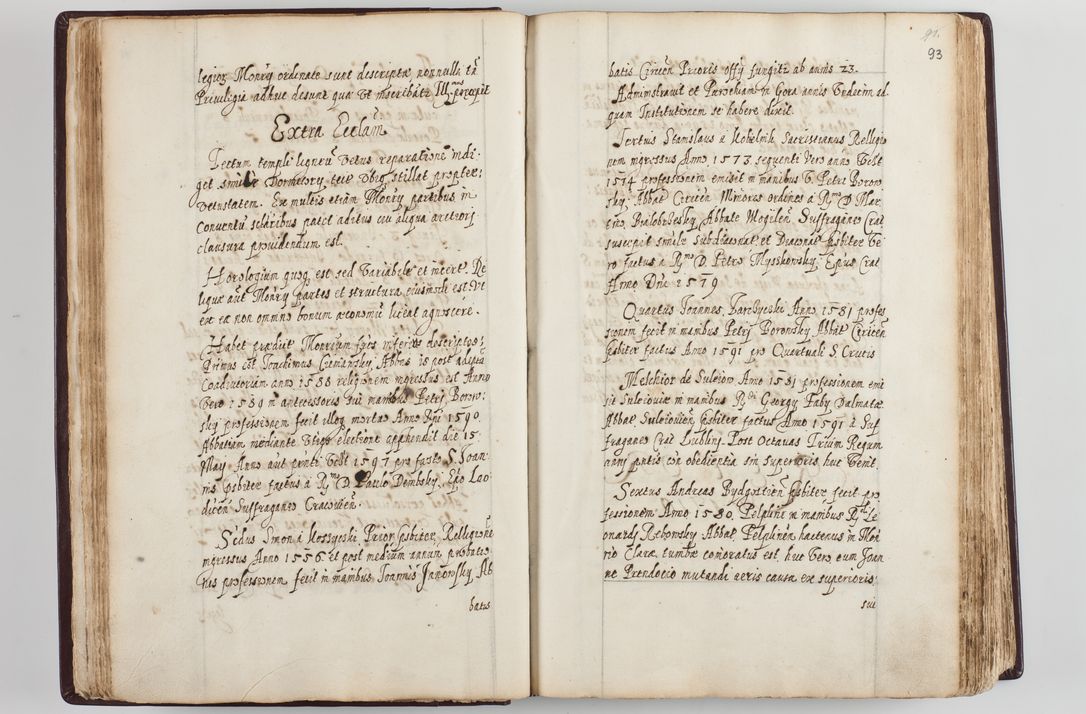 legior Monrÿ ordinate sunt descriptæ nonnulla tn
Priuilegia adhuc desunt quæ vt inscribãtr Ill. præcepit
Extra Eccłam
Tectum templi ligneũ vetus reparatione indi:
get similr Dormitorÿ tecť vbiq stillat propter
vetustatem. Ex multis etiam Monrÿ partibus in
Conuentũ sclaribus patet aditus cui aliqua
clausura prouidendum est.
Horologium quoq est sed variabile et incert. Re
liquæ aũt Monrÿ partes et structura eiusmodi est vt
ex ea non omnino bonum æconomũ liceat agnoscere.
Habet prædict Monrium frẽs inferius descriptos;
Primus est Joachimus Ciemansky Abbas is post adeptã
Coadiutoriam anno 1588 religionem ingressus est Anno
vero 1589 in antecessoris sui manibus Petri Boron:
sky professionem fecit illoq mortuo Anno Dni 1590
Abbatiam mediante electione apprhendit die 15
May Anno aũt pñti vełt 1597 pro festo S. Joan:
nis prsbiter factus a Rmo D. Paulo Dembsky Epo Lao
dicen Suffraganeo Cracouien
Scdus Simon a Kossyczki Prior prsbiter, Relligione
ingressus Anno 1556 et post medium annum probatio
nis professionem fecit in manibus Joannis Janrowsky Ab
batis
91.
93
batis Ciricen Prioris offÿ fungitr ab annis 23.
Administrauit et Parochiam in Gora annis vndecim ad
quam Institutionem se habere dixit.
Tertius Stanislaus a Kobelnik Sacristianus Relligio
nem ingressus Anno 1573 sequenti vero anno vełt
1574 professionem emisit in manibus V. Petri Boron
sky Abbae Ciricen Minores ordines a Rmo D. Mar
tino Bialobrzesky Abbate Mogilen Suffraganeo Crac
suscepit similr Subdiaconat et Diaconat prsbiter ve
ro factus a Rmo D. Petro Myszkowsky Epus Crac
Anno Dni 1579
Quartus Joannes Anno 1581 profes
sionem fecit in manibus Petri Boronsky Abbis Ciricen
prsbiter factus Anno 1591 pro Quartuali S. Crucis
Melchior de Suleiow Anno 1581 professionem emi
sit Suleiouiæ in manibus Rdi Georgÿ Faby Dalmatæ
Abbae Suleiouien prsbiter factus Anno 1591 a Suf
fraganeo Crac Lublini. Post Octauas Trium Regum
anni pñtis con obedientia sui superioris huc venit
Sextus Andreas Bydgostien prsbiter fecit pro
fessionem Anno 1580 Pelplini in manibus Rdi Le
onardi Rebowsky Abbae Pelplinen hactenus in Mon
rio Claræ tumbæ comoratus est huc vero cum Joan
ne Prendocio mutandi aeris causa ex superioris
sui